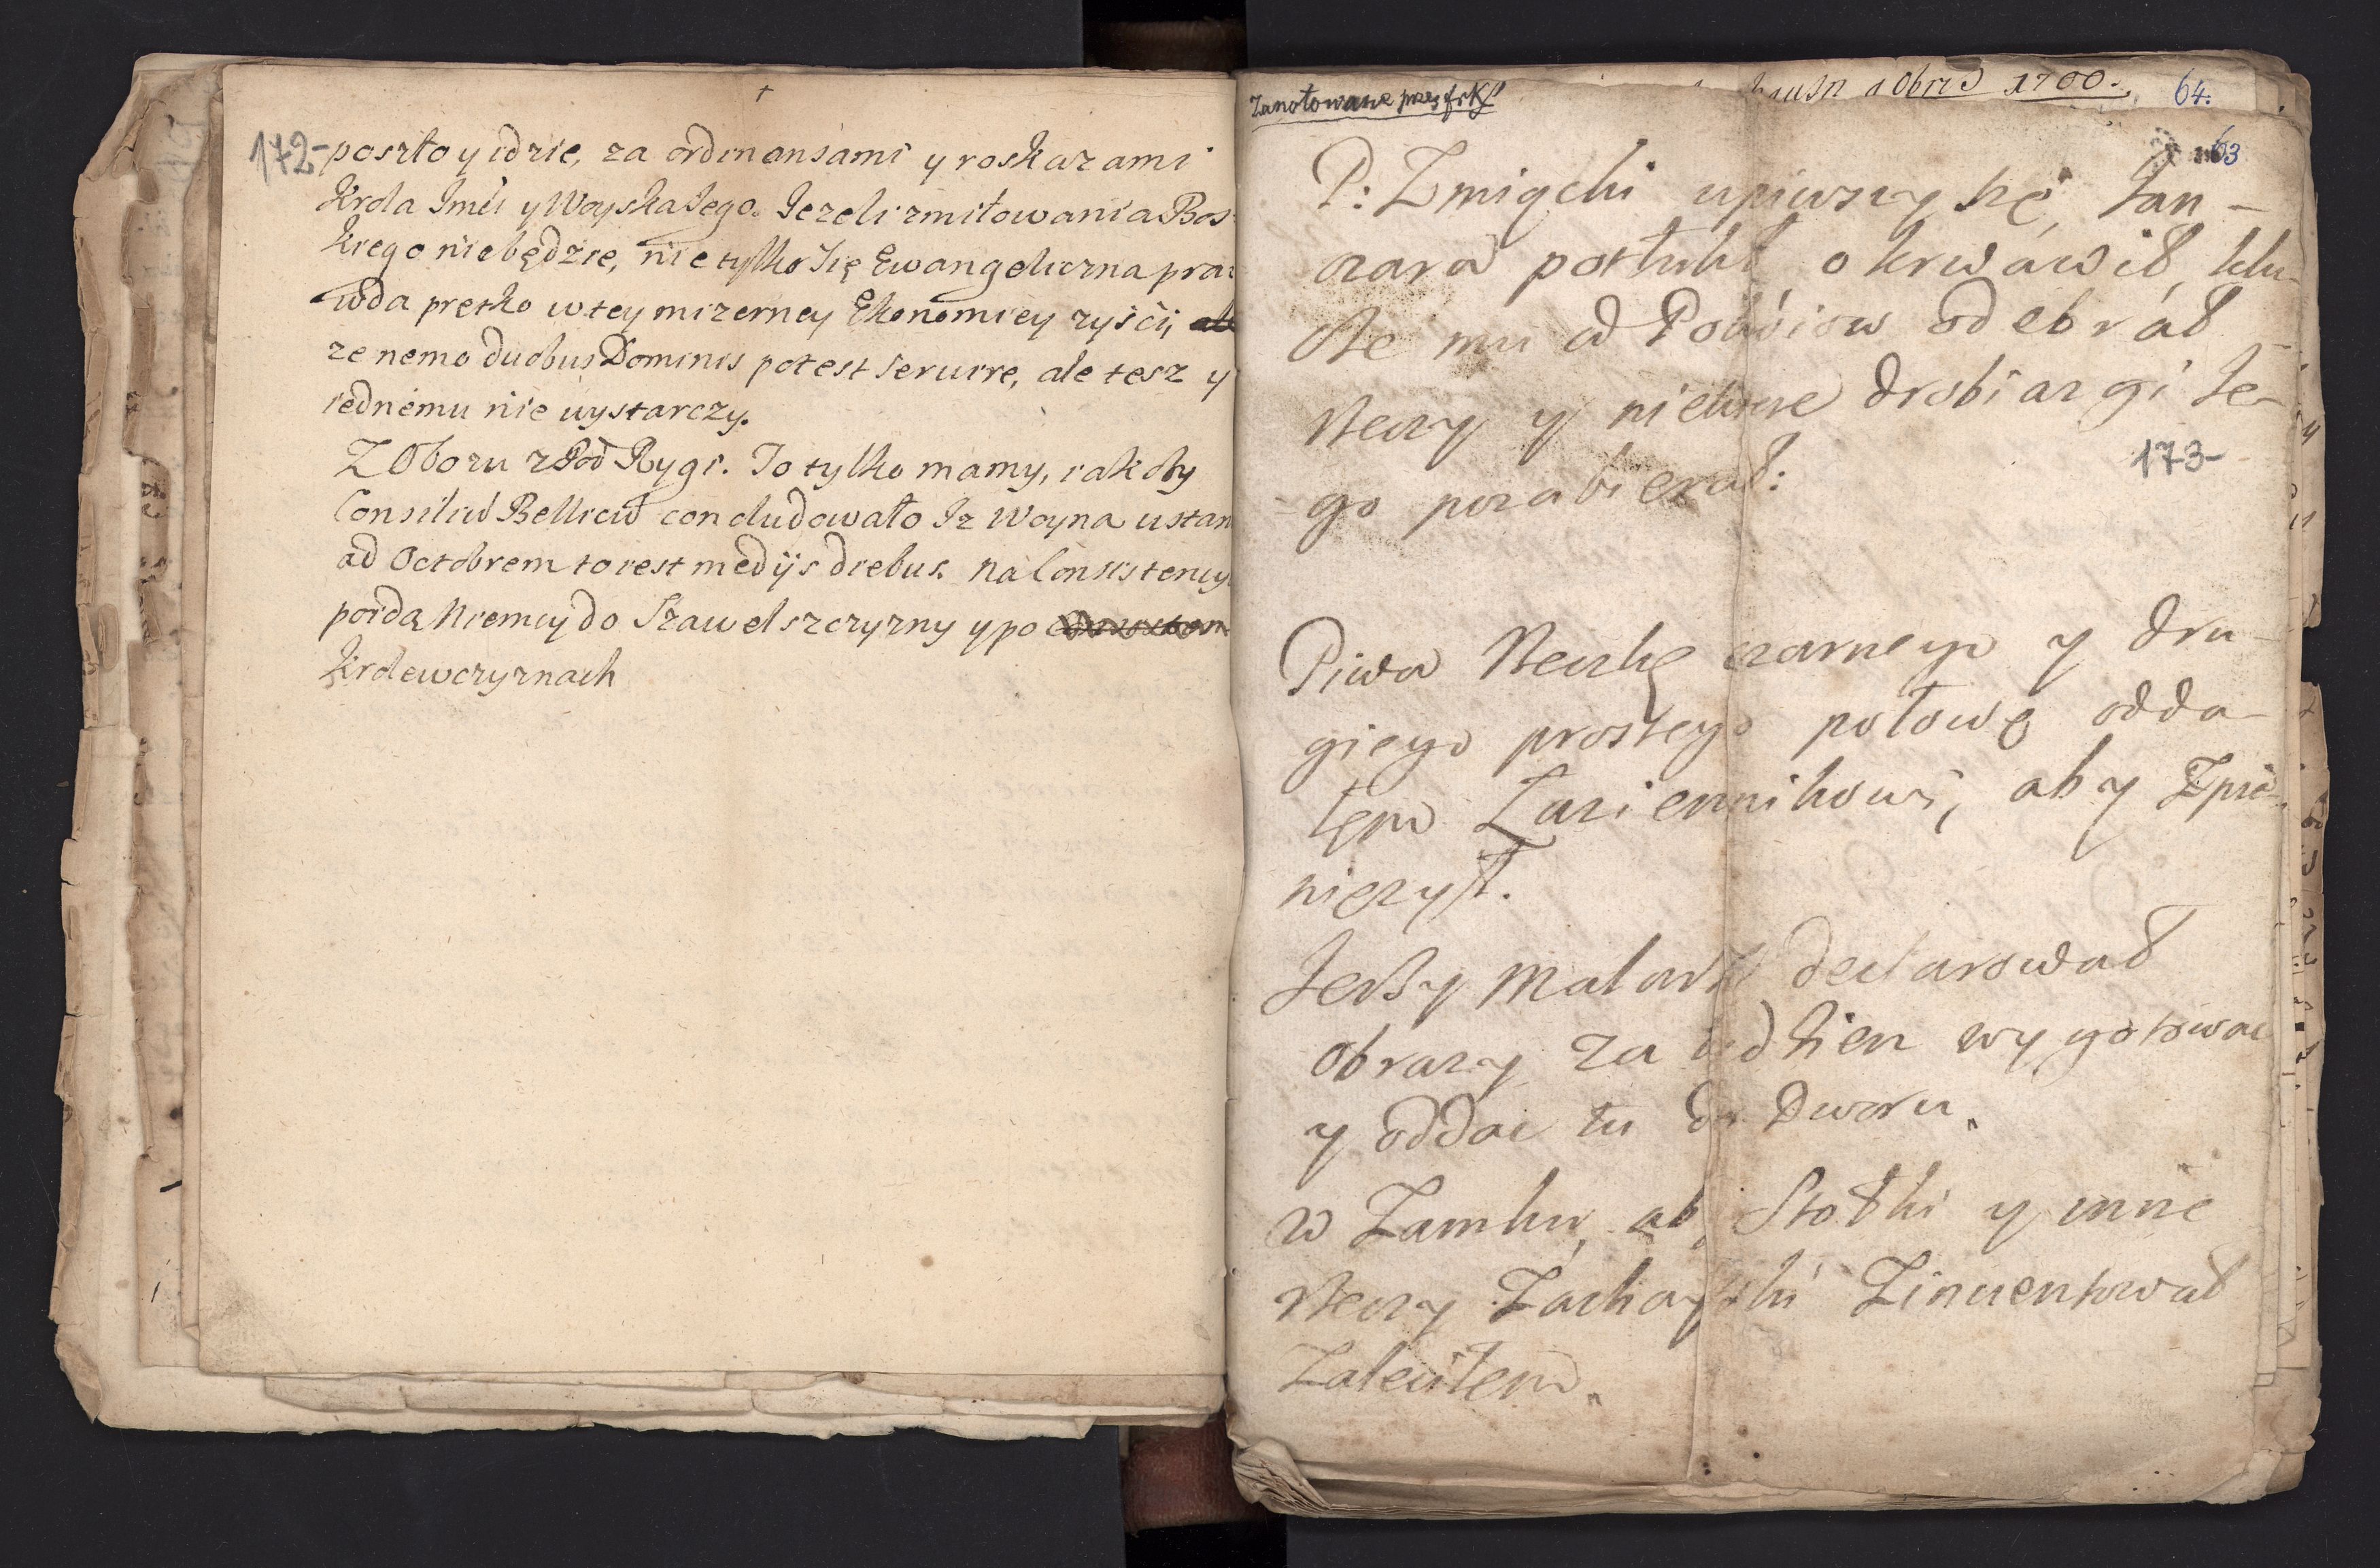 172-
poszło y idzie, za ordinansami y roskazami
Krola Jmci y Woyska Jego. Jezeli zmiłowania Bos-
kiego niebędzie, nie tylko Się Ewangeliczna pra-
wda prętko w tey mizerney Ekonomiey zyści,
ze nemo duobus Dominis potest seruire, ale tesz y
iednemu nie wystarczy.
Z Obozu z Pod Rygi. To tylko mamy, iakoby
Consiliũ Bellicũ concludowało Iz Woyna ustan
ad Octobrem to iest medijs diebus. na Consistency
poidą Niemcy do Szawelszczyzny y po
Krolewczyznach
Zanotowane przez
1700.
64.
63
P: Zmiqcki upiwszy się, Jan-
czara potłukł okrwáwił, klu-
cze mu od Pokóiow odebráł
Rzeczy y niektore drobiazgi Je-
173-
go pozabierał:
Piwa Beczkę czarnego y dru-
giego prostego połowę odda-
łem Łaziennikowi, aby Zpie-
nięzył.
Jerzy Malarz declarował
Obrazy za tydzien wygotowac
y oddac tu do Dworu.
w Zamku, aby Stołki y inne
Rzeczy Zinuentował
Zaleciłem.